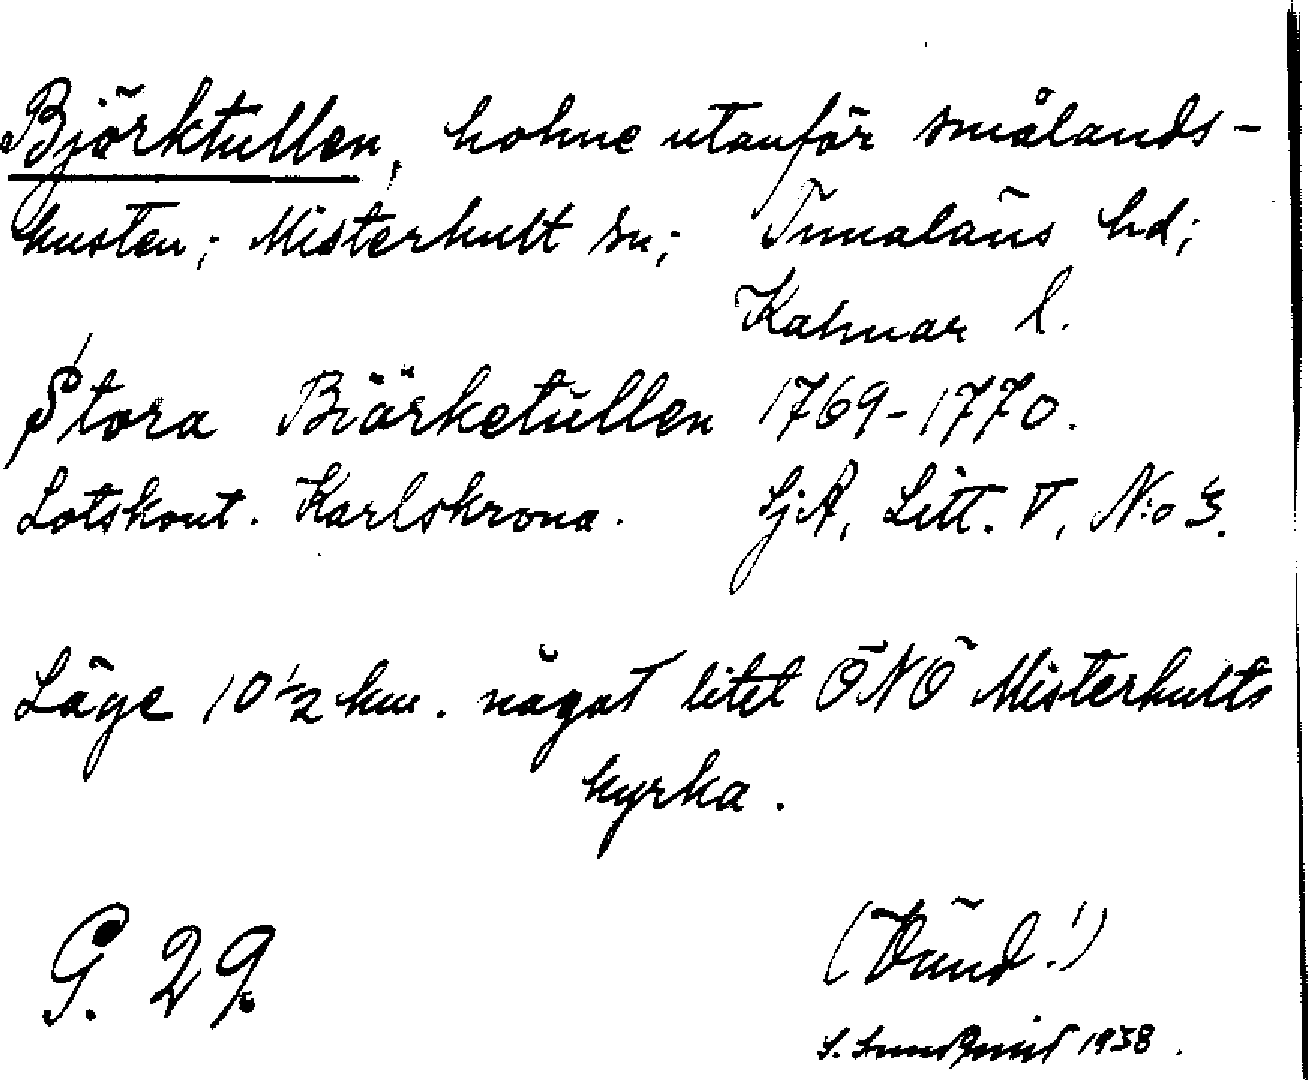 Björktullen, holme utanför smålands-
kusten; Misterhult sn; Tunaläns hd;
Kalmar l.
Stora Biörketullen 1769-1770.
Lotskont. Karlskrona. SjA, Litt. V, N:o 3.
Läge 10 1/2 km. något litet ÖNÖ Misterhults
kyrka.
G. 29. (Vänd!)
1938.